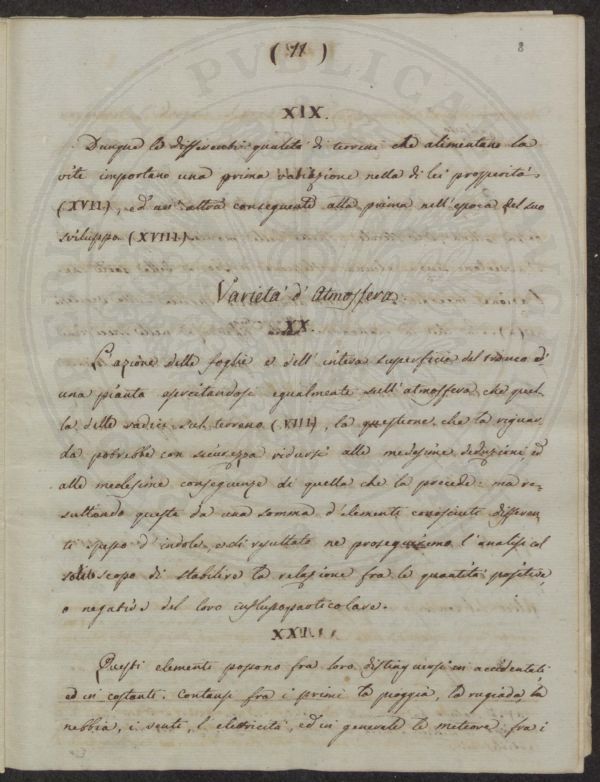 ( 11 )
8
XIX.
Dunque le differenti qualità di terreni che alimentano la
vite importano una prima variazione nella di lei prosperità
(XVII), ed un'altra conseguente alla prima nell'epoca del suo
sviluppo (XVIII).
Varietà d'Atmosfera.
XX.
L'azione delle foglie e dell'intera superficie del tronco d'
una pianta esercitandosi egualmente sull'atmosfera che quel-
la delle radici sul terreno (VIII), la questione che la riguar-
da potrebbe con sicurezza ridursi alle medesime deduzioni, ed
alle medesime conseguenze di quella che la precede: ma re-
sultando questa da una somma d'elementi conosciuti differen-
ti spesso d'indole, e di resultato ne proseguiremo l'analisi col
solito scopo di stabilire la relazione fra le quantità positive,
o negative del loro influsso particolare.
XXI.
Questi elementi possono fra loro distinguersi in accidentali
ed in costanti. Contansi fra i primi la pioggia, la rugiada, la
nebbia, i venti, l'elettricità, ed in generale le meteore: fra i